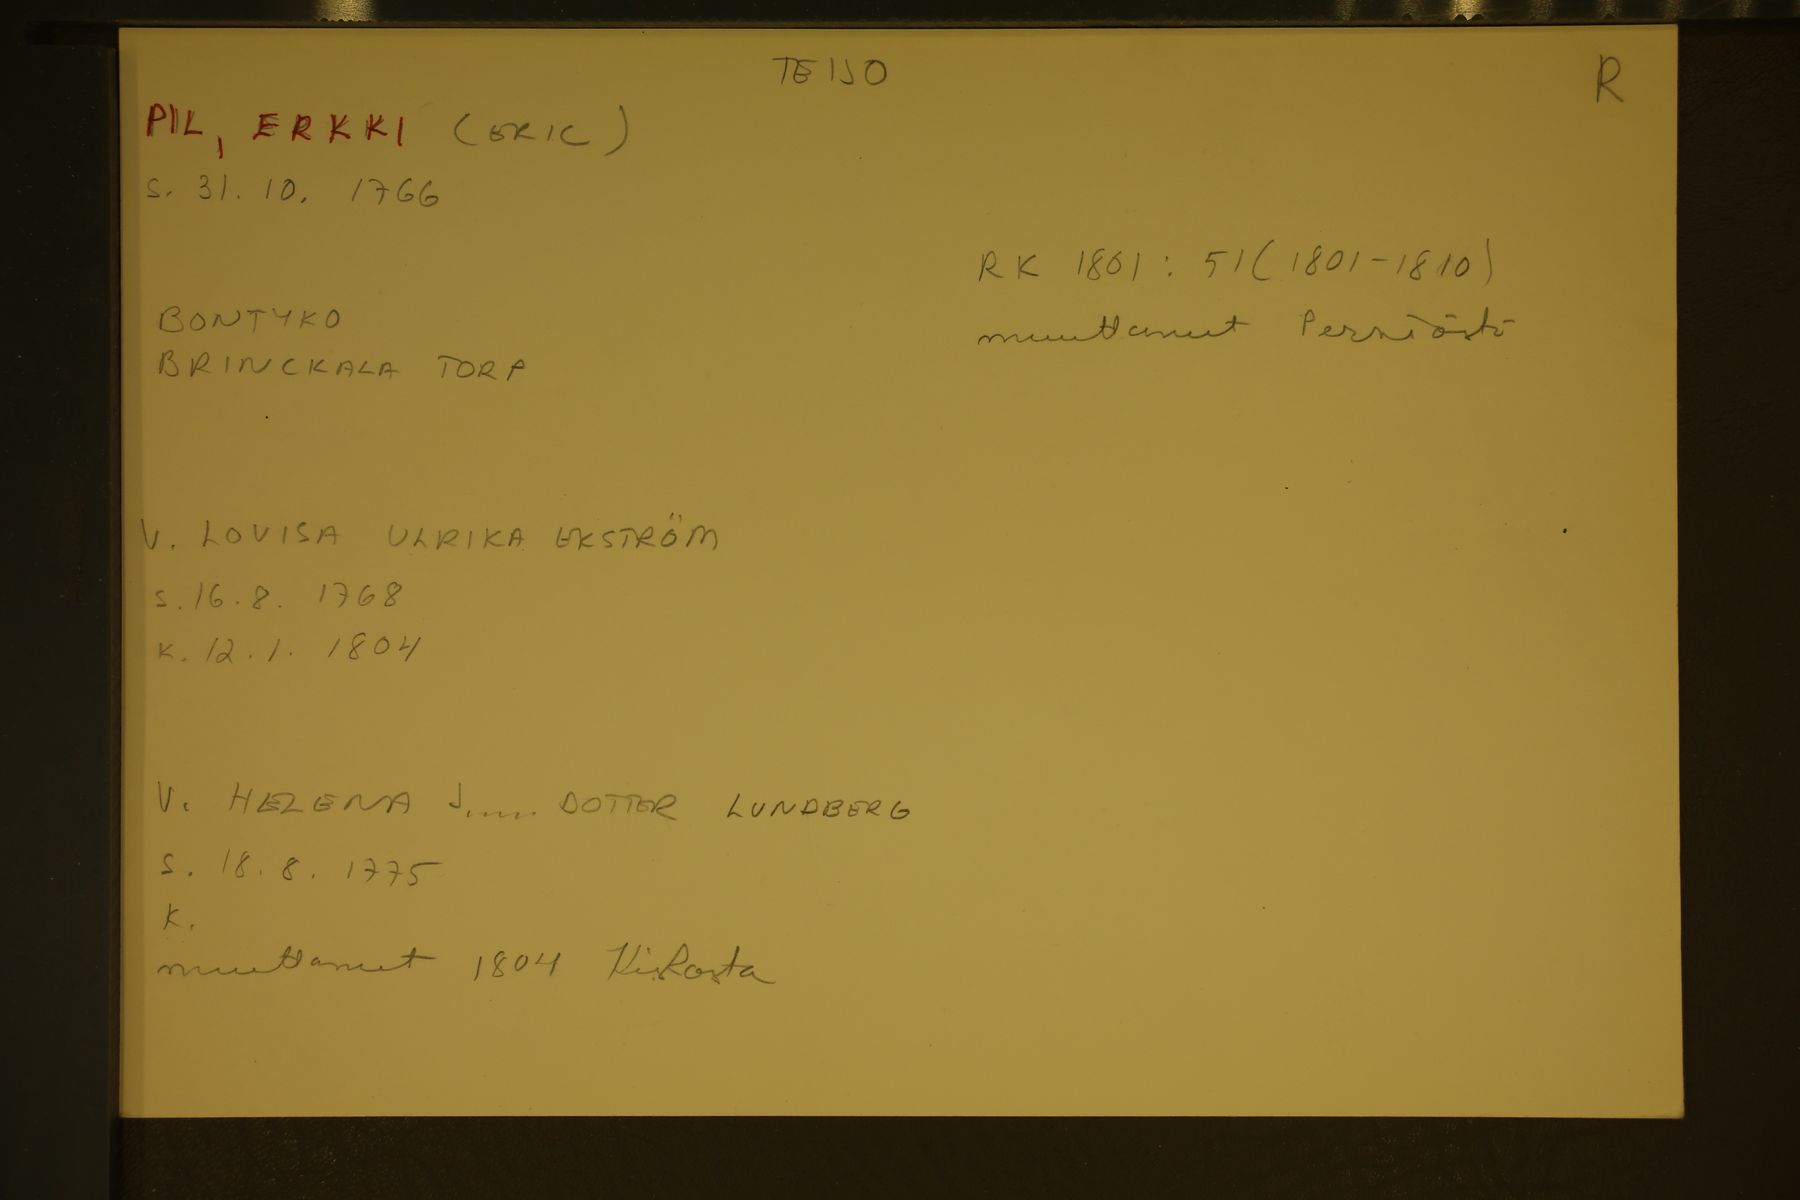 TEIJO
R
PIL, ERKKI (ERIC)
s. 31. 10. 1766
RK 1801: 51 (1801-1810)
muuttanut Perniöstä
BONTYKO
BRINCKALA TORP
V. LOVISA ULRIKA EKSTRÖM
s. 16. 8. 1768
K. 12. 1. 1804
V. HELENA J..... DOTTER LUNDBERG
S. 18. 8. 1775
K.
muuttanut 1804 Kiskosta